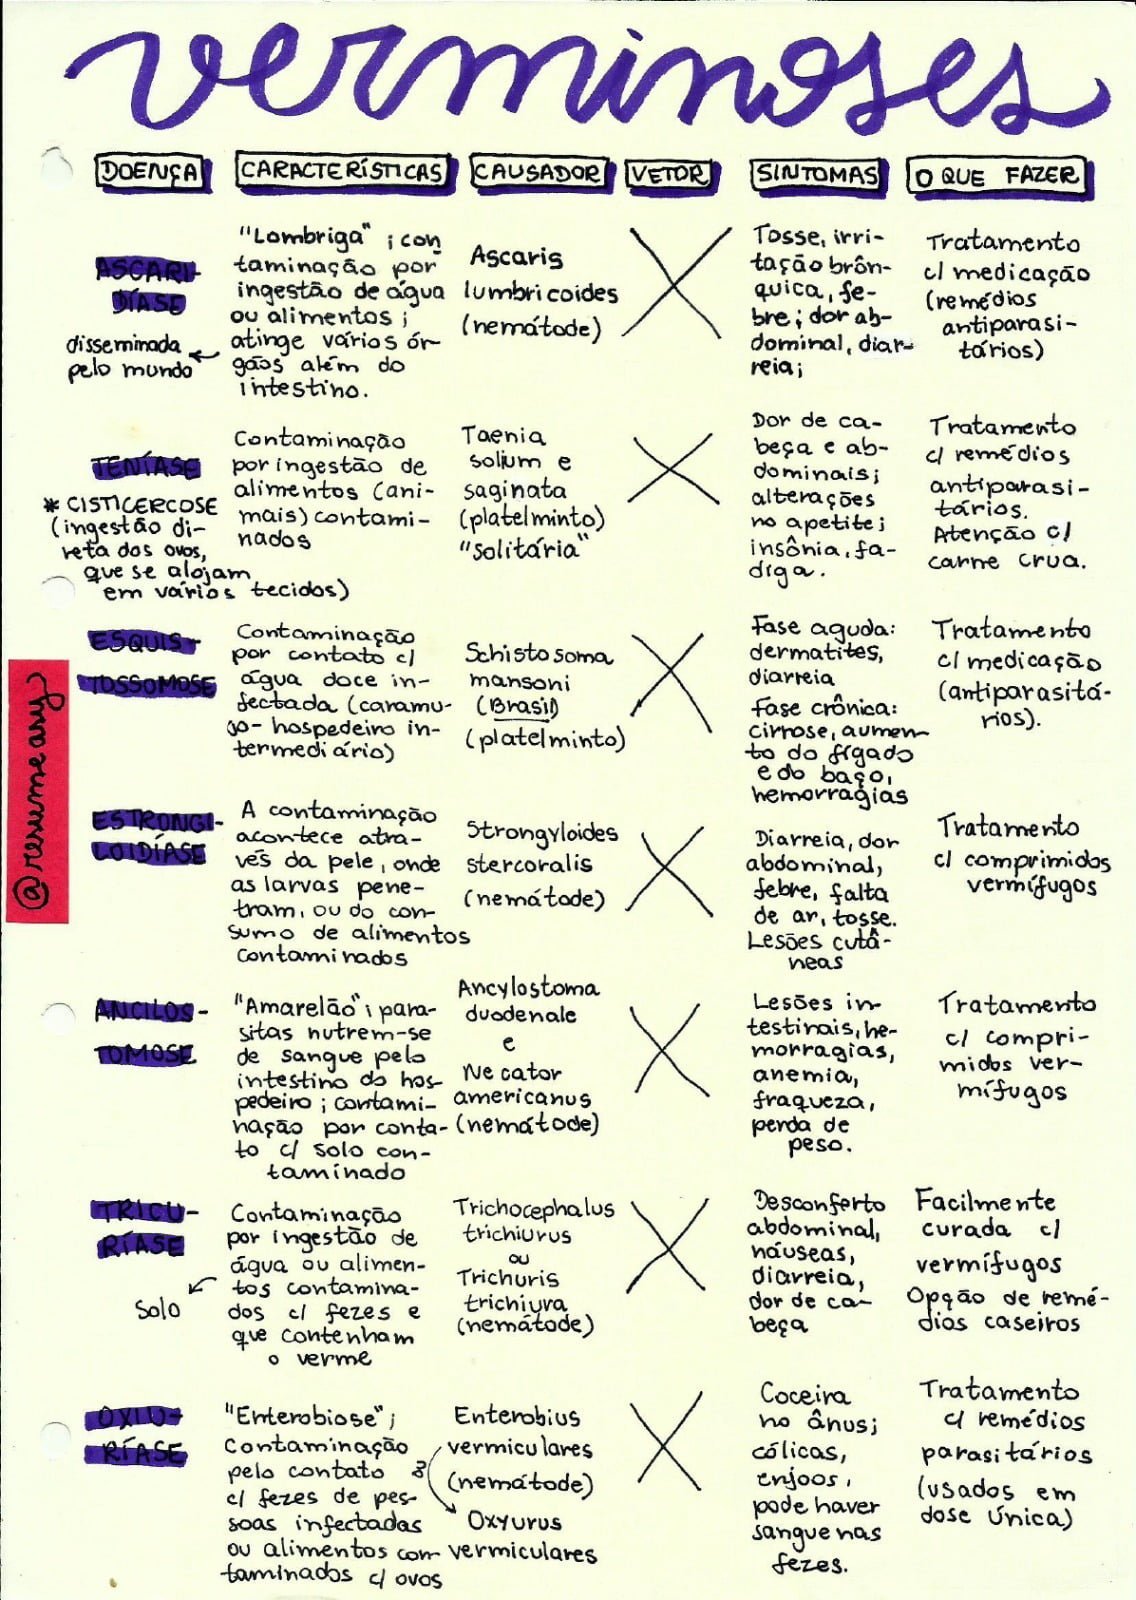 verminoses
DOENÇA
CARACTERÍSTICAS
CAUSADOR
VETOR
SINTOMAS
O QUE FAZER
ASCARI-
DÍASE
disseminada
pelo mundo
"Lombriga"; con
taminação por
ingestão de água
ou alimentos;
atinge vários ór-
gãos além do
intestino.
Ascaris
lumbricoides
(nemátode)
Tosse, irri-
tação brôn-
quica, fe-
bre; dor ab-
dominal, diar-
reia;
Tratamento
c/ medicação
(remédios
antiparasi-
tários)
TENÍASE
* CISTICERCOSE
(ingestão di-
reta dos ovos,
que se alojam
em vários tecidos)
Contaminação
por ingestão de
alimentos (ani-
mais) contami-
nados
Taenia
solium e
saginata
(platelminto)
"Solitária"
Dor de ca-
beça e ab-
dominais;
alterações
no apetite;
insônia, fa-
diga.
Tratamento
c/ remédios
antiparasi-
tários.
Atenção c/
carne crua.
ESQUIS-
TOSSOMOSE
Contaminação
por contato c/
água doce in-
fectada (caramu-
jo- hospedeiro in-
termediário)
Schistosoma
mansoni
(Brasil)
(platelminto)
Fase aguda:
dermatites,
diarreia
Fase crônica:
cirrose, aumen-
to do fígado
e do baço,
hemorragias
Tratamento
c/ medicação
(antiparasitá-
rios).
@resumeany
ESTRONGI-
LOIDÍASE
A contaminação
acontece atra-
vés da pele, onde
as larvas pene-
tram, ou do con-
sumo de alimentos
contaminados
Strongyloides
stercoralis
(nemátode)
Diarreia, dor
abdominal,
febre, falta
de ar, tosse.
Lesões cutâ-
neas
Tratamento
c/ comprimidos
vermífugos
ANCILOS-
TOMOSE
"Amarelão"; para-
sitas nutrem-se
de sangue pelo
intestino do hos-
pedeiro; contami-
nação por conta-
to c/ solo con-
taminado
Ancylostoma
duodenale
e
Necator
americanus
(nemátode)
Lesões in-
testinais, he-
morragias,
anemia,
fraqueza,
perda de
peso.
Tratamento
c/ compri-
midos ver-
mífugos
TRICU-
RÍASE
Solo
Contaminação
por ingestão de
água ou alimen-
tos contamina-
dos c/ fezes e
que contenham
o verme
Trichocephalus
trichiurus
ou
Trichuris
trichiura
(nemátode)
Desconforto
abdominal,
náuseas,
diarreia,
dor de ca-
beça
Facilmente
curada c/
vermífugos
Opção de remé-
dios caseiros
OXIU-
RÍASE
"Enterobiose";
contaminação
pelo contato
c/ fezes de pes-
soas infectadas
ou alimentos con-
taminados c/ ovos
Enterobius
vermiculares
(nemátode)
Oxyurus
vermiculares
Coceira
no ânus;
cólicas,
enjoos,
pode haver
sangue nas
fezes.
Tratamento
c/ remédios
parasitários
(usados em
dose única)